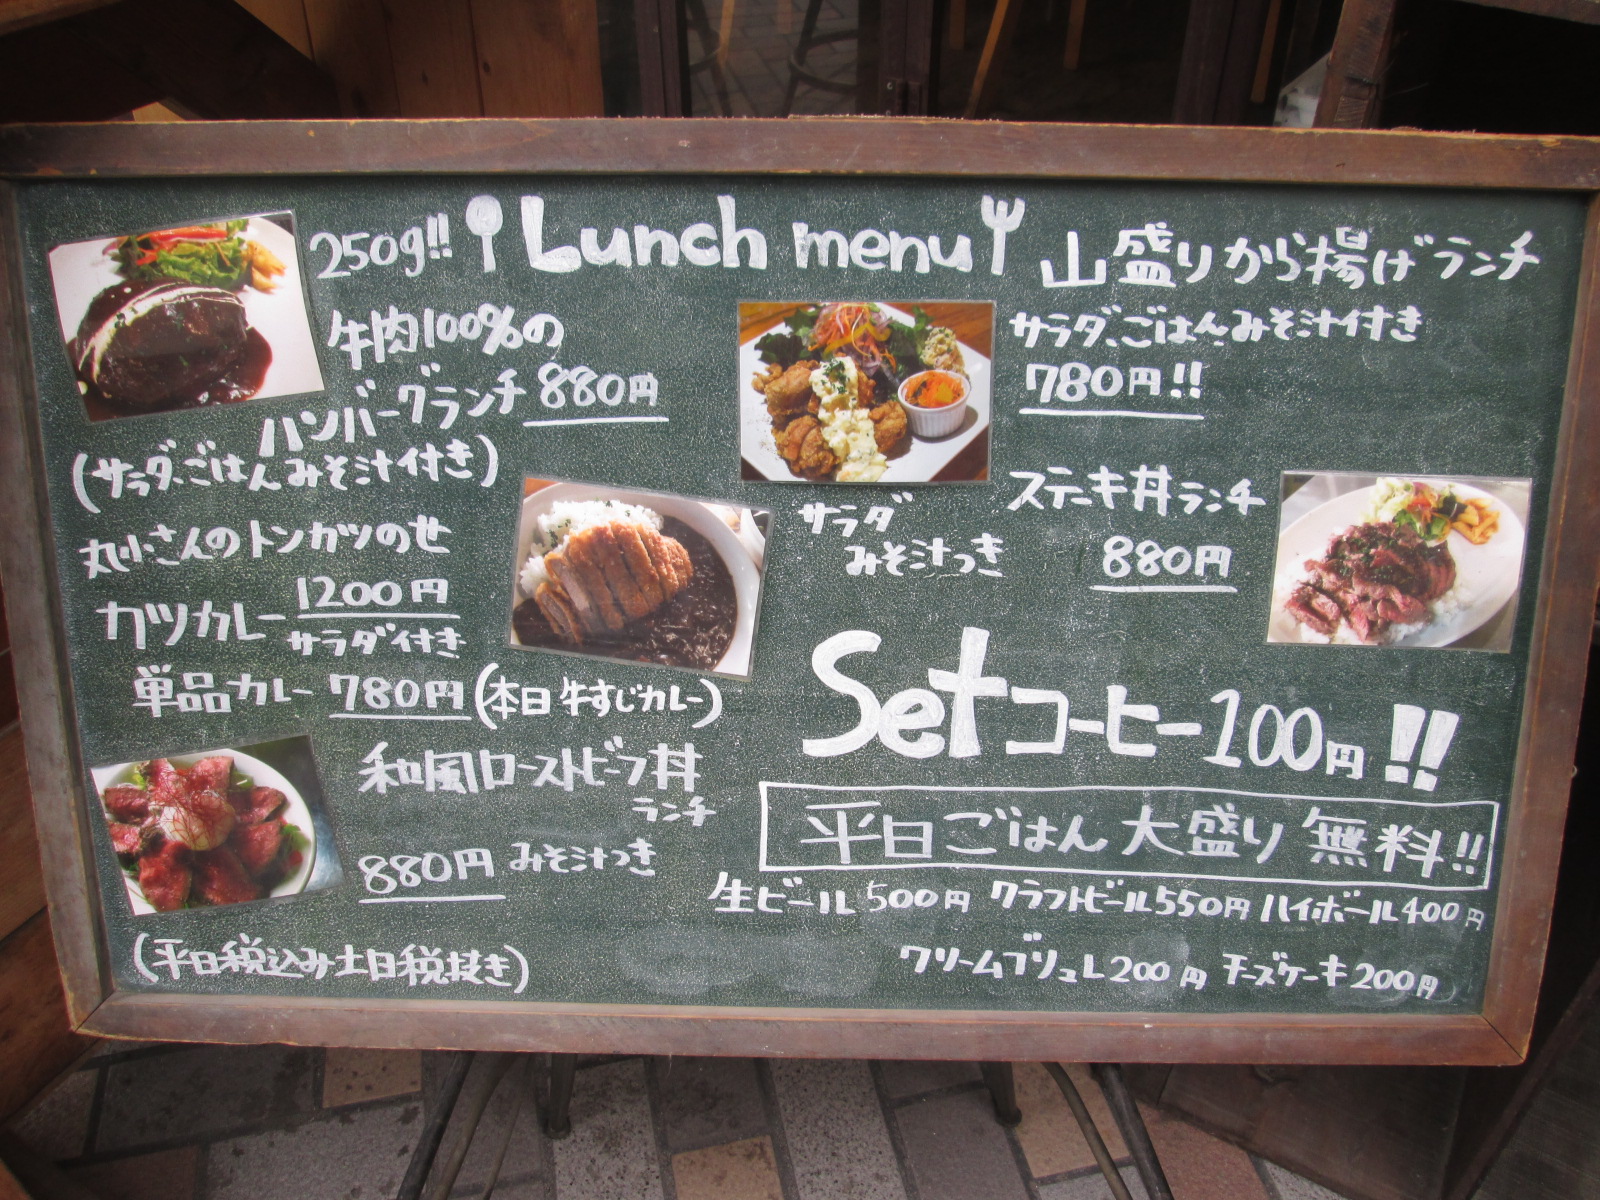 Lunch menu
250g!!
牛肉100%の
ハンバーグランチ 880円
(サラダ、ごはん、みそ汁付き)
丸小さんのトンカツのせ
カツカレー 1200円
サラダ付き
単品カレー 780円 (本日 牛すじカレー)
和風ローストビーフ丼
ランチ
880円 みそ汁つき
(平日税込み土日税抜き)
山盛りから揚げランチ
サラダ、ごはん、みそ汁付き
780円!!
ステーキ丼ランチ
サラダ
みそ汁つき
880円
Setコーヒー100円!!
平日ごはん大盛り無料!!
生ビール500円 クラフトビール550円 ハイボール400円
クリームブリュレ200円 チーズケーキ200円